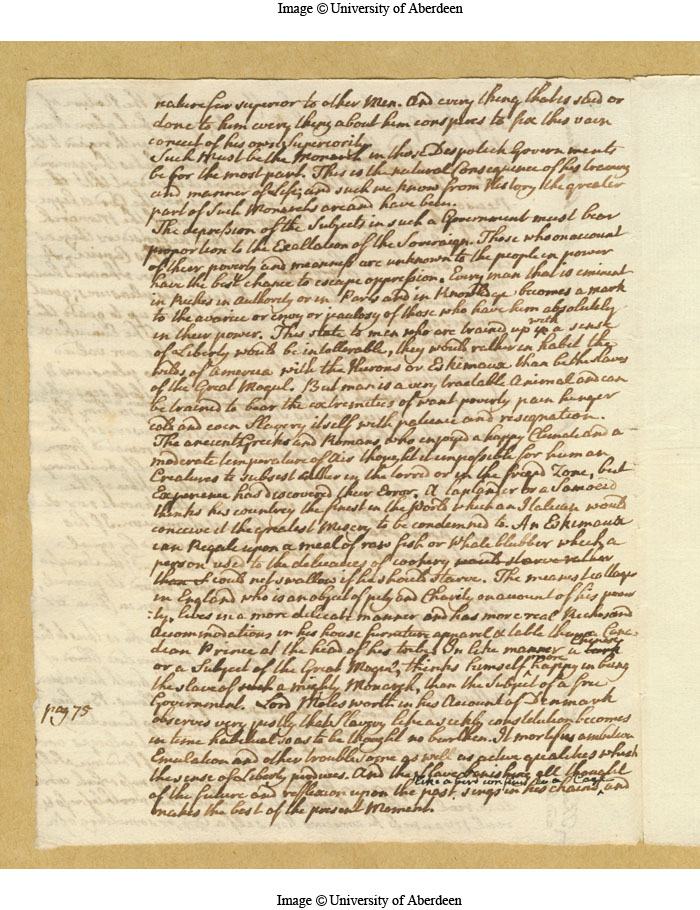 Image © University of Aberdeen
nature far superior to other Men. And every thing that is said or
done to him every thing about him conspires to fix this vain
conceit of his own Superiority
Such Must be the Monarch in those Despotick Governments
be for the most part. This is the natural Consequence of his training
and manner of Life, and such we know from History the greater
part of Such Monarchs are and have been.
The depression of the Subjects in such a Government must bear
proportion to the Exaltation of the Sovereign. Those who on account
of their poverty and meanness are unknown to the people in power
have the best chance to escape oppression. Every man that is eminent
in Riches in Authority or in Parts and in Knowledge becomes a mark
to the avarice or envy or jealousy of those who have him absolutely
in their power. This state to men who are traind up in a sense
with
of Liberty would be intollerable, they would rather inhabit the
wilds of America with the Hurons or Eskimaux than be the slaves
of the Great Mogul. But man is a very tractable Animal and can
be trained to bear the extremities of want poverty pain hunger
cold and even Slavery itself with patience and resignation.
The ancient Greeks and Romans, who enjoyd a happy Climate and a
moderate temperature of Air thought it impossible for human
Creatures to subsist either in the torrid or in the frigid Zone, but
Experience has discovered their Error. A Laplander or a Samoeid
thinks his country the finest in the World which an Italian would
conceive it the greatest Misery to be condemned to. An Eskimaux
can Regale upon a meal of raw fish or Whale blubber which a
person used to the delicacies of cookery would starve rather
than I could not swallow if he should starve. The meanest cottager
in England who is an object of pity and Charity on account of his pover
:ty, lives in a more delicate manner and has more real Riches and
Accommodations in his house furniture apparel & table than a Cana
dian Prince at the head of his tribe. In like manner a Turk
Chinese
or a Subject of the Great Mogul, thinks himself happy in being
more
the slave of such a mighty Monarch, than the Subject of a free
Government. Lord Molesworth in his Account of Denmark
pag 75
observes very justly that Slavery like a sickly constitution becomes
in time habitual so as to be thought no burthen. It mortifys ambition
Emulation and other troublesome as well as active qualities which
the sense of Liberty produces. And the slave banishing all thought
like a bird confined in a Cage
of the future and reflexion upon the past, sings in his chains, and
makes the best of the present Moment.
Image © University of Aberdeen